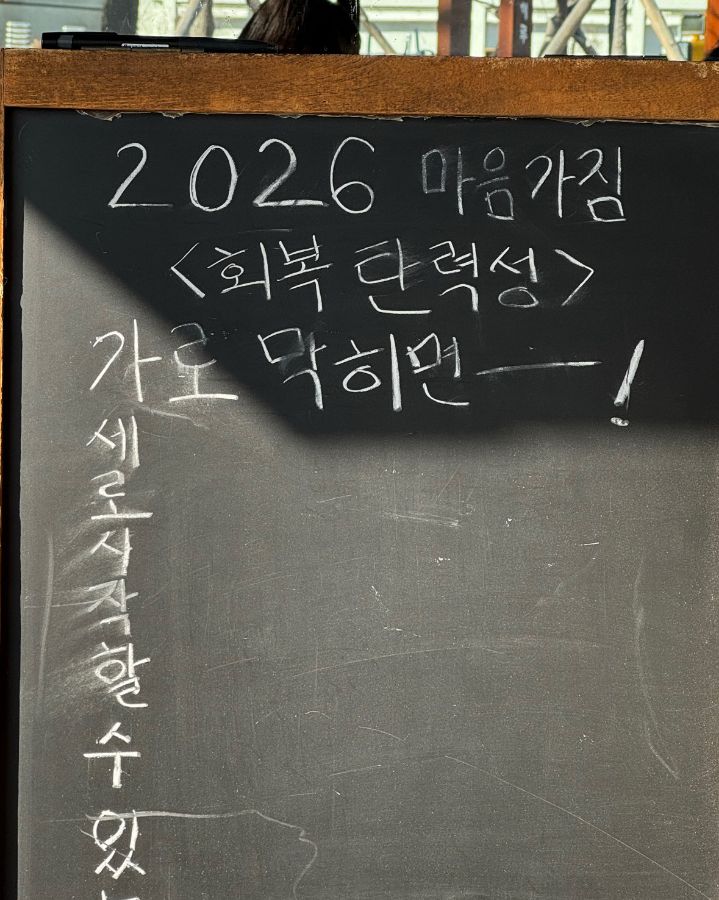 2026 마음가짐
<회복 탄력성>
가로 막히면 — !
세
로
시
작
할
수
있